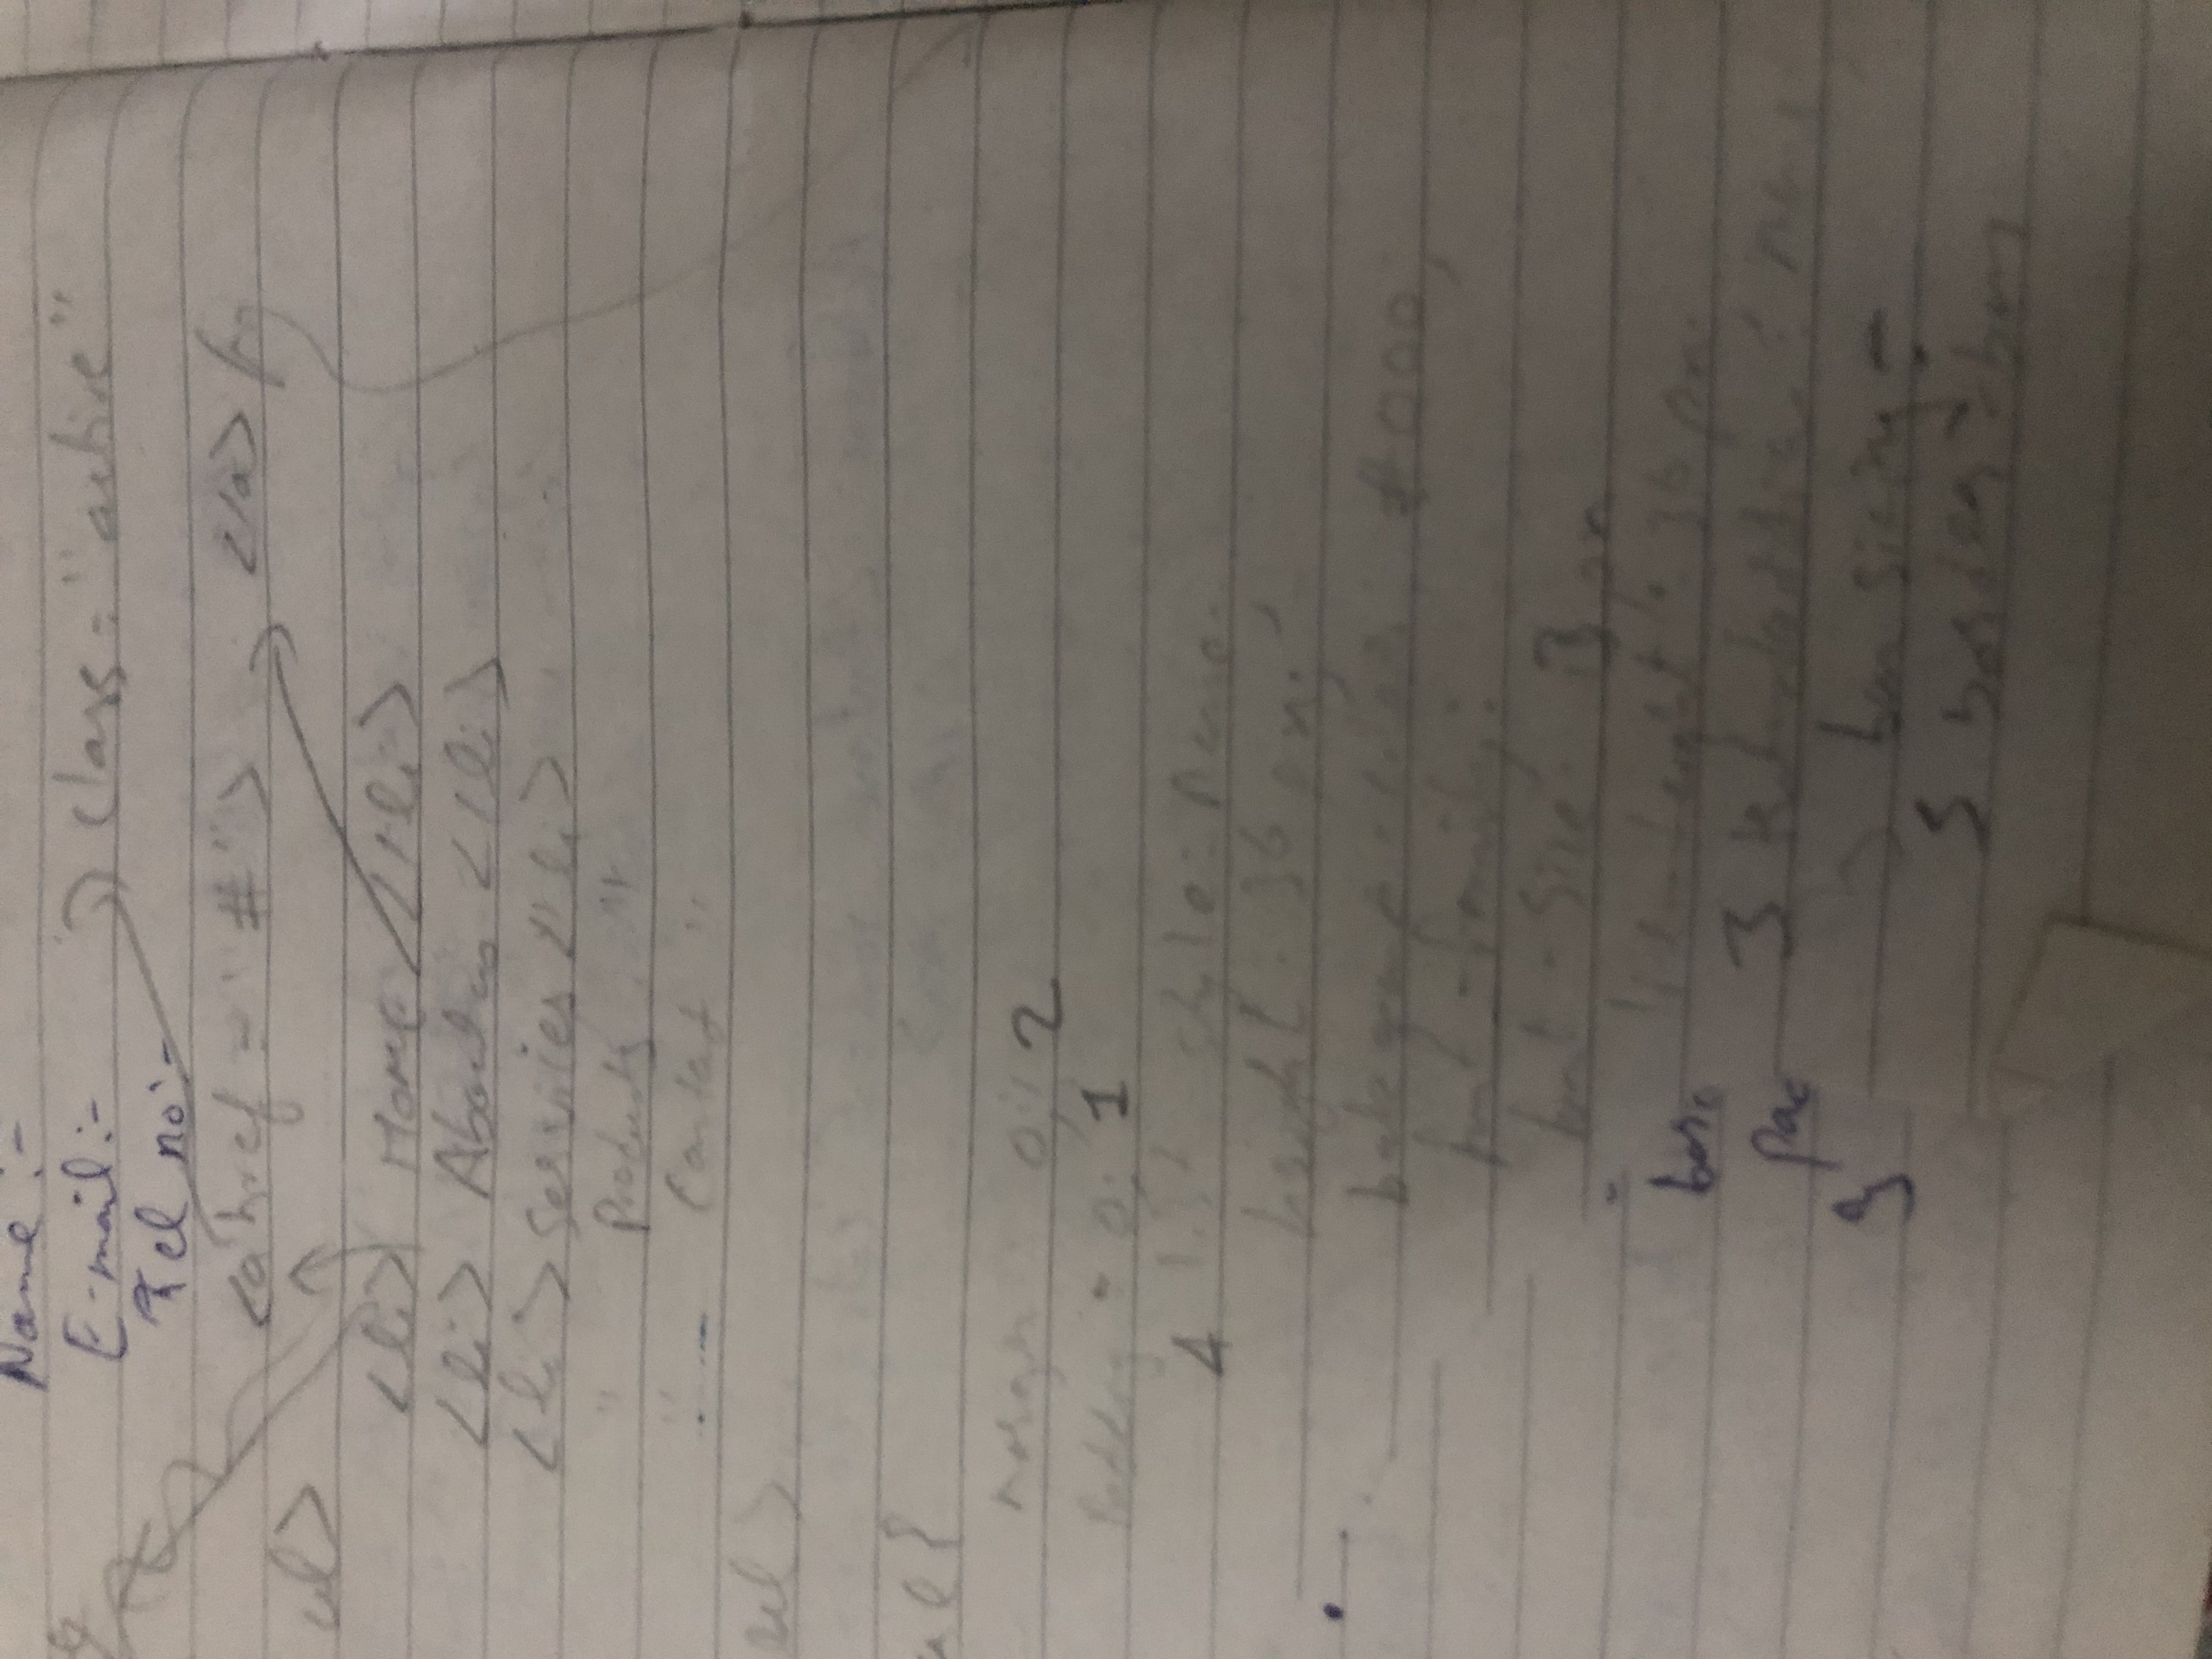 Name :-
E-mail :-
class = "active"
Tel no :-
<a href = "#"> </a>
ul>
<li> Home </li>
<li> About us </li>
<li> Services </li>
" Products "
" Contact "
ul>
ul{
margin : 0; 2
Padding : 0; 1
4 list style : none
height : 36 px;
#000;
font - family :
font - Size 13 px
line - height : 36 px;
3 : none
pac
box sizing -
5 border - box
}